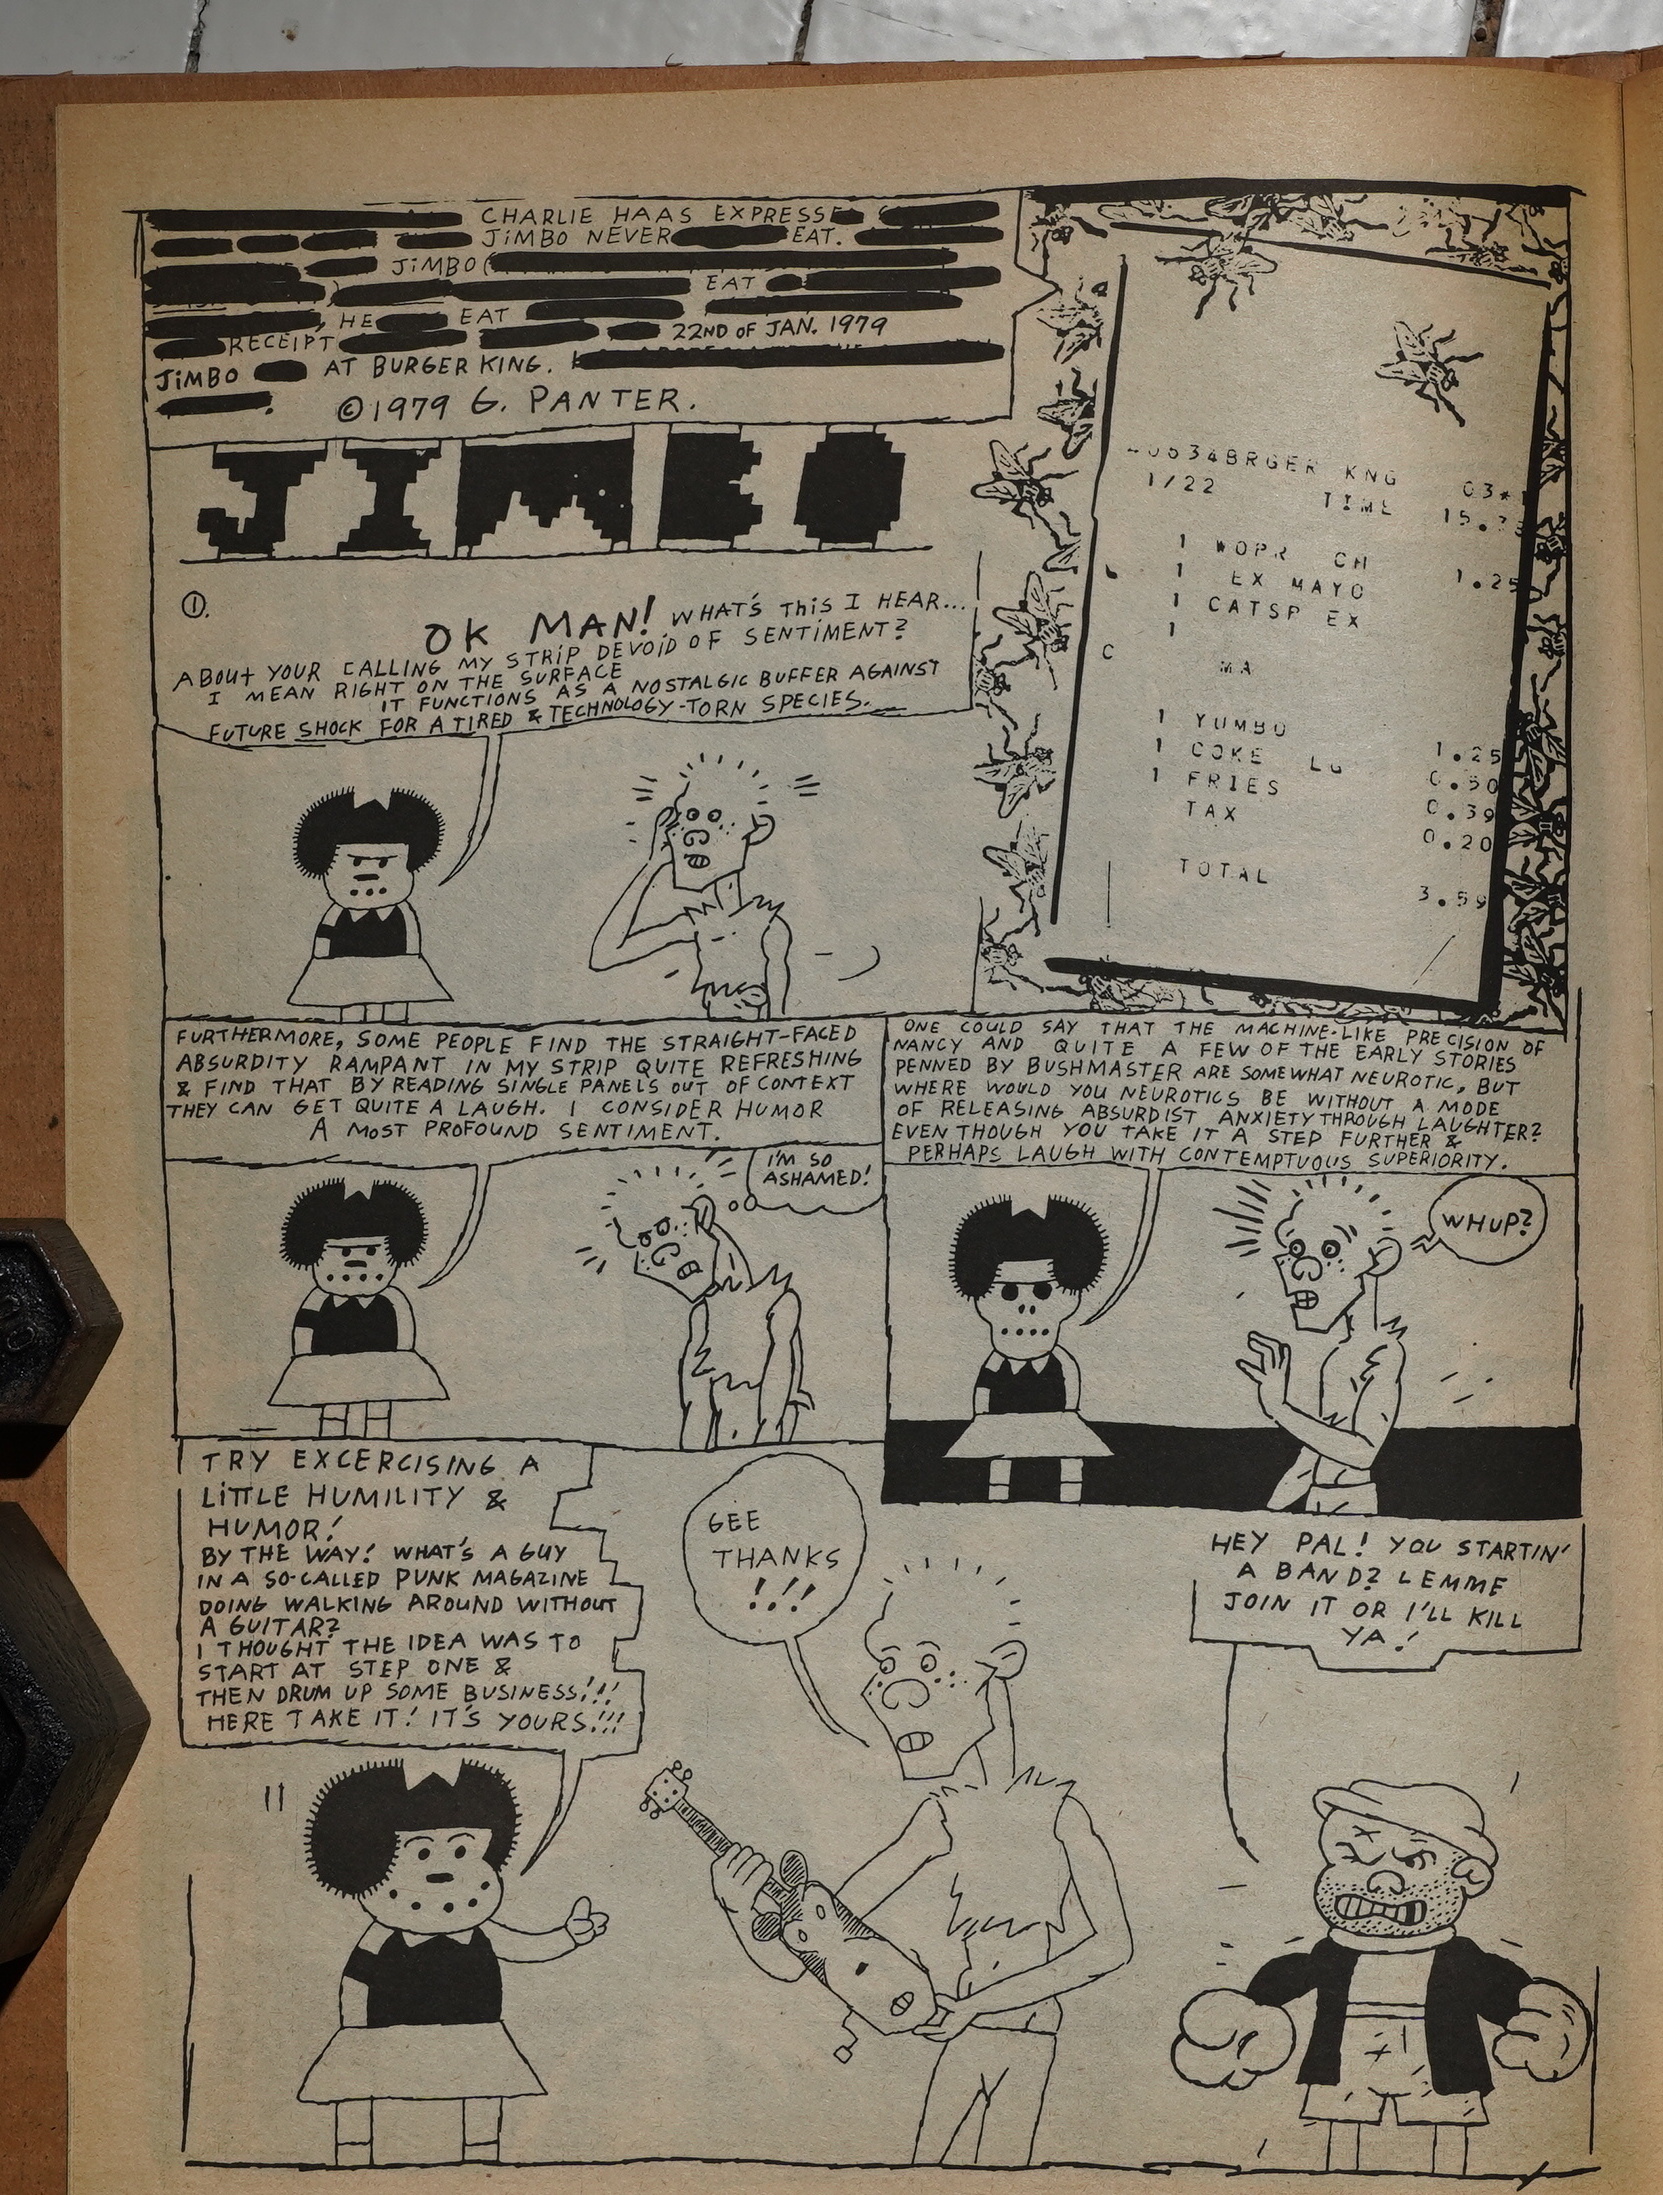 CHARLIE HAAS EXPRESSE
JiMBO NEVER EAT.
JiMBO (
EAT
, HE EAT
RECEIPT 22ND OF JAN. 1979
JiMBO AT BURGER KING.
©1979 G. PANTER.
JIMBO
①.
OK MAN! WHAT'S THiS I HEAR...
ABOUt YOUR CALLING MY STRIP DEVOID OF SENTIMENT?
I MEAN RIGHT ON THE SURFACE
IT FUNCTIONS AS A NOSTALGIC BUFFER AGAINST
FUTURE SHOCK FOR A TIRED & TECHNOLOGY-TORN SPECIES.
BRGER KNG 03*
1/22 TIME
1 WOPR CH 1.25
1 EX MAYO
1 CATSP EX
1
C
MA
1 YUMBO 1.25
1 COKE LG 0.50
1 FRIES 0.39
TAX 0.20
TOTAL 3.59
FURTHERMORE, SOME PEOPLE FIND THE STRAIGHT-FACED
ABSURDITY RAMPANT IN MY STRIP QUITE REFRESHING
& FIND THAT BY READING SINGLE PANELS OUT OF CONTEXT
THEY CAN GET QUITE A LAUGH. I CONSIDER HUMOR
A MOST PROFOUND SENTIMENT.
I'M SO
ASHAMED!
ONE COULD SAY THAT THE MACHINE-LIKE PRECISION OF
NANCY AND QUITE A FEW OF THE EARLY STORIES
PENNED BY BUSHMASTER ARE SOMEWHAT NEUROTIC, BUT
WHERE WOULD YOU NEUROTICS BE WITHOUT A MODE
OF RELEASING ABSURDIST ANXIETY THROUGH LAUGHTER?
EVEN THOUGH YOU TAKE IT A STEP FURTHER &
PERHAPS LAUGH WITH CONTEMPTUOUS SUPERIORITY.
WHUP?
TRY EXCERCISING A
LITTLE HUMILITY &
HUMOR!
BY THE WAY! WHAT'S A GUY
IN A SO-CALLED PUNK MAGAZINE
DOING WALKING AROUND WITHOUT
A GUITAR?
I THOUGHT THE IDEA WAS TO
START AT STEP ONE &
THEN DRUM UP SOME BUSINESS!!!
HERE TAKE IT! IT'S YOURS!!!
GEE
THANKS
!!!
HEY PAL! YOU STARTIN'
A BAND? LEMME
JOIN IT OR I'LL KILL
YA!